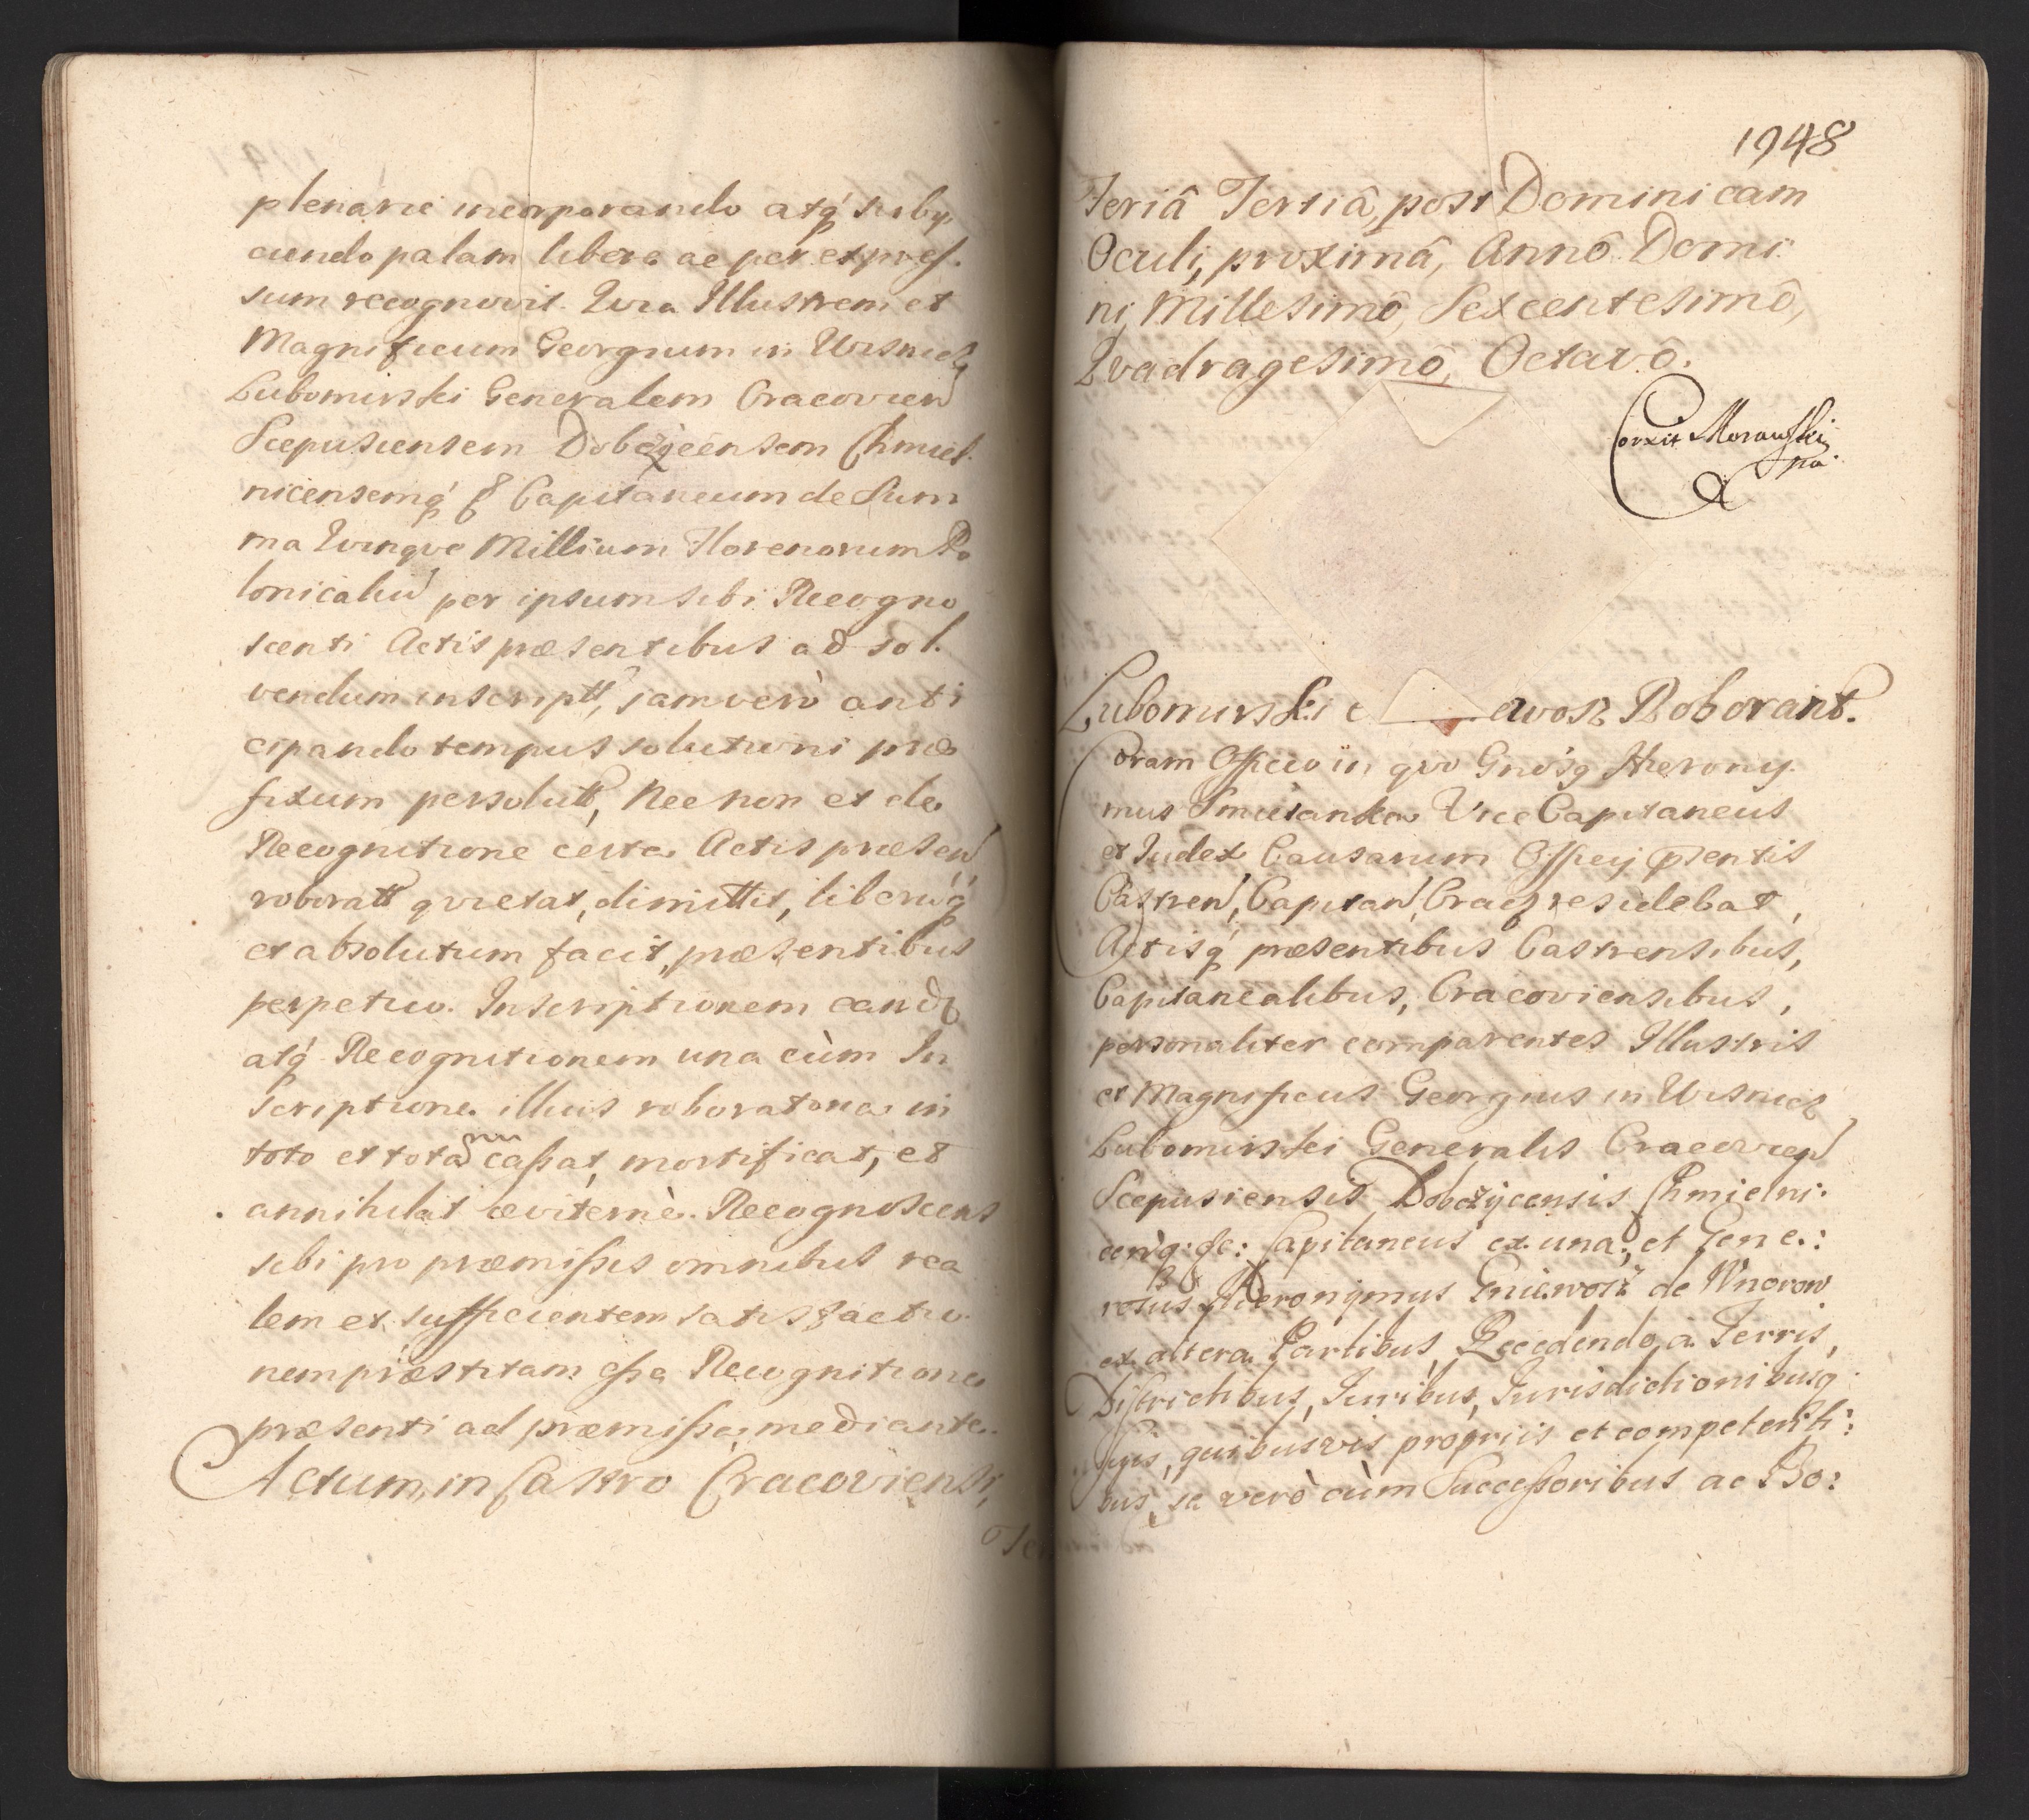 plenarie incorporando atq́ subÿ,
ciendo palam libere ac per expres.
sum recognovit. Qvia Illustrem et
Magnificum Georgium in Wisnicz
Lubomirski Generalem Cracovien
Scepusiensem Dobczÿcensem Chmiel.
nicensemq́ & Capitaneum de Sum
ma Qvinqve Millium Florenorum Po
lonicaliu per ipsum sibi Recogno
scenti Actis præsentibus ad sol.
vendum inscriptt, jam verò anti
cipando tempus solutioni præ
fixum persolutt, Nec non et de
Recognitione certa Actis præsen
roboratt qvietat, dimittit, liberuq́
et absolutum facit, præsentibus
perpetuo. Inscriptionem eand
atq́ Recognitionem una cùm In
scriptione illius roboratona in
toto et tota cassat, mortificat, et
annihilat æviternè. Recognoscens
sibi pro præmissis omnibus rea
lem et sufficientem satisfactio.
nem præstitam esse Recognitione
præsenti ad præmissa mediante.
Actum in Castro Cracoviensi,
Fer
1948
Feriâ Tertiâ, post Dominicam
Oculi, proximâ, Annô Domi:
ni, Millesimô, Sexcentesimô,
Qvadragesimô, Octavô.
Corxit Morawski
mp.
Lubomirski e awosz Roborant.
Coram Officio in qvo Gnosq Hierony.
mus Smietanka Vice Capitaneus
et Iudex Causarum Officij pſentis
Castren, Capitan, Cracz residebat,
Actisq́ præsentibus Castrensibus,
Capitanealibus, Cracoviensibus,
personaliter comparentes Illustris
et Magnificus Georgius in Wisnicz
Lubomirski Generalis Cracovien
Scepusiensis Dobczÿcensis Chmielni.
cenq: &c: Capitaneus ex una, et Gene:
rosus Hieronÿmus Gniewosz de Wnorow
ex altera Partibus, Recedendo, a Terris,
Districtibus, Iuribus, Iurisdictionibusq
suis, quibusvis propriis et competenti:
bus, se verò cùm Successoribus ac Bo: